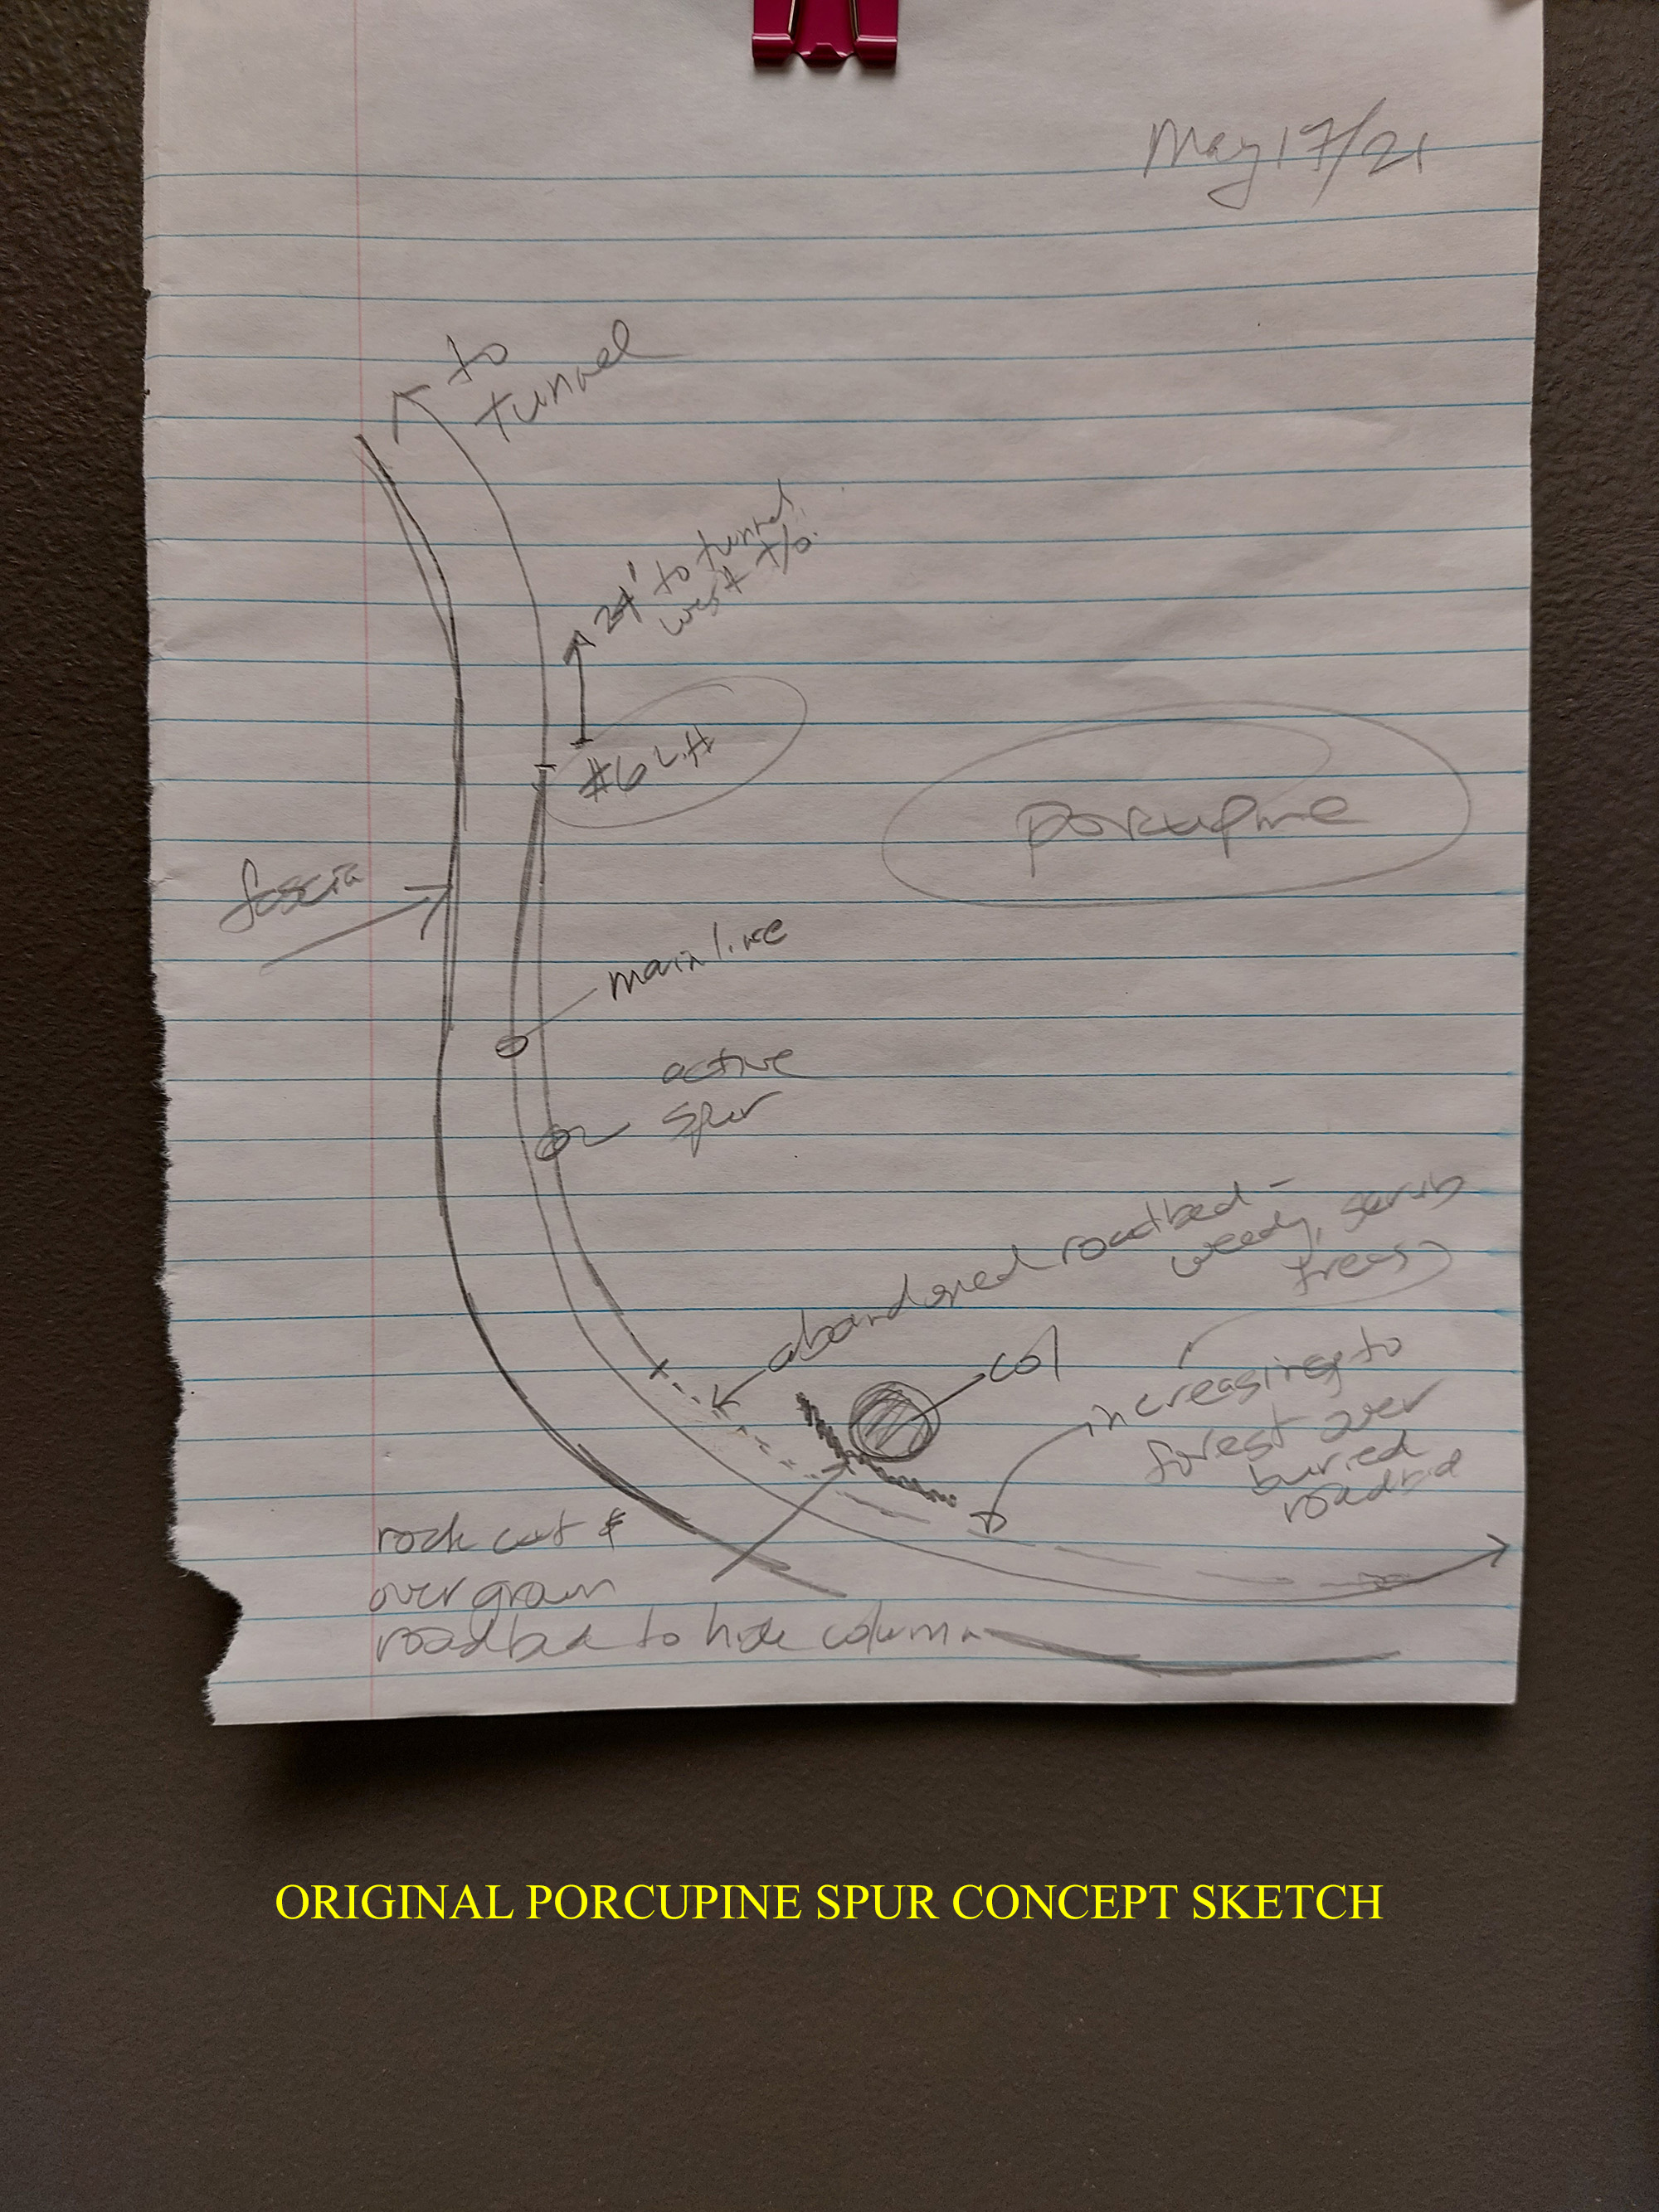 May 17/21
to
tunnel
24' to tunnel
west t/o.
#6 L.H
porcupine
fascia
mainline
active
spur
abandoned roadbed -
weedy, scrub
trees
col
increasing to
forest over
buried
roadbed
rock cut &
overgrown
roadbed to hide column
ORIGINAL PORCUPINE SPUR CONCEPT SKETCH